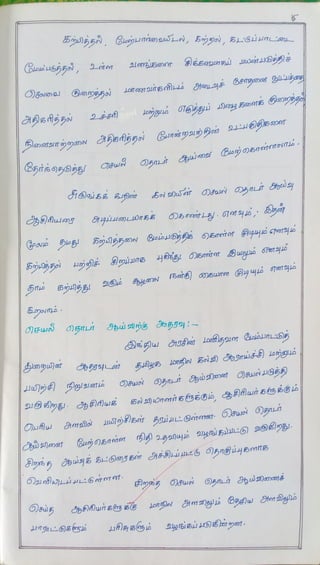 5
கற்பித்தல், மேற்பார்வையிடல், கற்றல், கட்டுப்பாட்டை
மேம்படுத்தல், உள்ள வளங்களை சிக்கனமாகப் பயன்படுத்திச்
செலவை குறைத்தல் மாணவர்களிடம் அடைவுச் சோதனை
அதிகரித்தல் உச்சரி மற்றும் எழுத்துப் பிழைகளைக் குறைத்தல்
நினைவாற்றலை அதிகரித்தல் போன்றவற்றின் உட்பகுதிகளை
தேர்ந்தெடுத்து செயல் தொடர் ஆய்வை மேற்கொள்ளலாம்.
சுருங்கக் கூறின் கல்வியின் செயல் தொடர் ஆய்வு
ஆசிரியரை அடிப்படையாகக் கொண்டது எனவும், இதன்
மூலம் தமது கற்பித்தலை மேம்படுத்திக் கொள்ள முடியும் எனவும்
கற்பித்தல் பற்றிச் சிறப்பாக புரிந்து கொள்ள இயலும் எனவும்
தாம் கற்பித்து வரும் சூழலை நன்கு கையாள முடியும் எனவும்
கூறலாம்.
செயல் தொடர் ஆய்விற்கு ஆதரவு :-
இந்திய அரசின் மனிதவள மேம்பாட்டுத்
துறையின் ஆதரவுடன் தமிழக மாநில கல்வி ஆராய்ச்சி மற்றும்
பயிற்சி நிறுவனம் செயல் தொடர் ஆய்வினை செயல்படுத்தி
வருகிறது. ஆசிரியக் கல்வியாளர்களுக்கும், ஆசிரியர்களுக்கும்
பெரிய அளவில் பயிற்சிகள் தரப்பட்டுள்ளன. செயல் தொடர்
ஆய்வினை மேற்கொள்ள நிதி உதவியும் வழங்கப்பட்டு வருகிறது.
சிறந்த ஆய்வுக் கட்டுரைகள் அச்சிடப்பட்டு தொகுப்புகளாக
வெளியிடப்பட்டுள்ளன.
சிறந்த செயல் தொடர் ஆய்வினைச்
செய்த ஆசிரியர்களுக்கு மாநில அளவிலும் தேசிய அளவிலும்
பாராட்டுகளும் பரிசுகளும் வழங்கப்படுகின்றன.